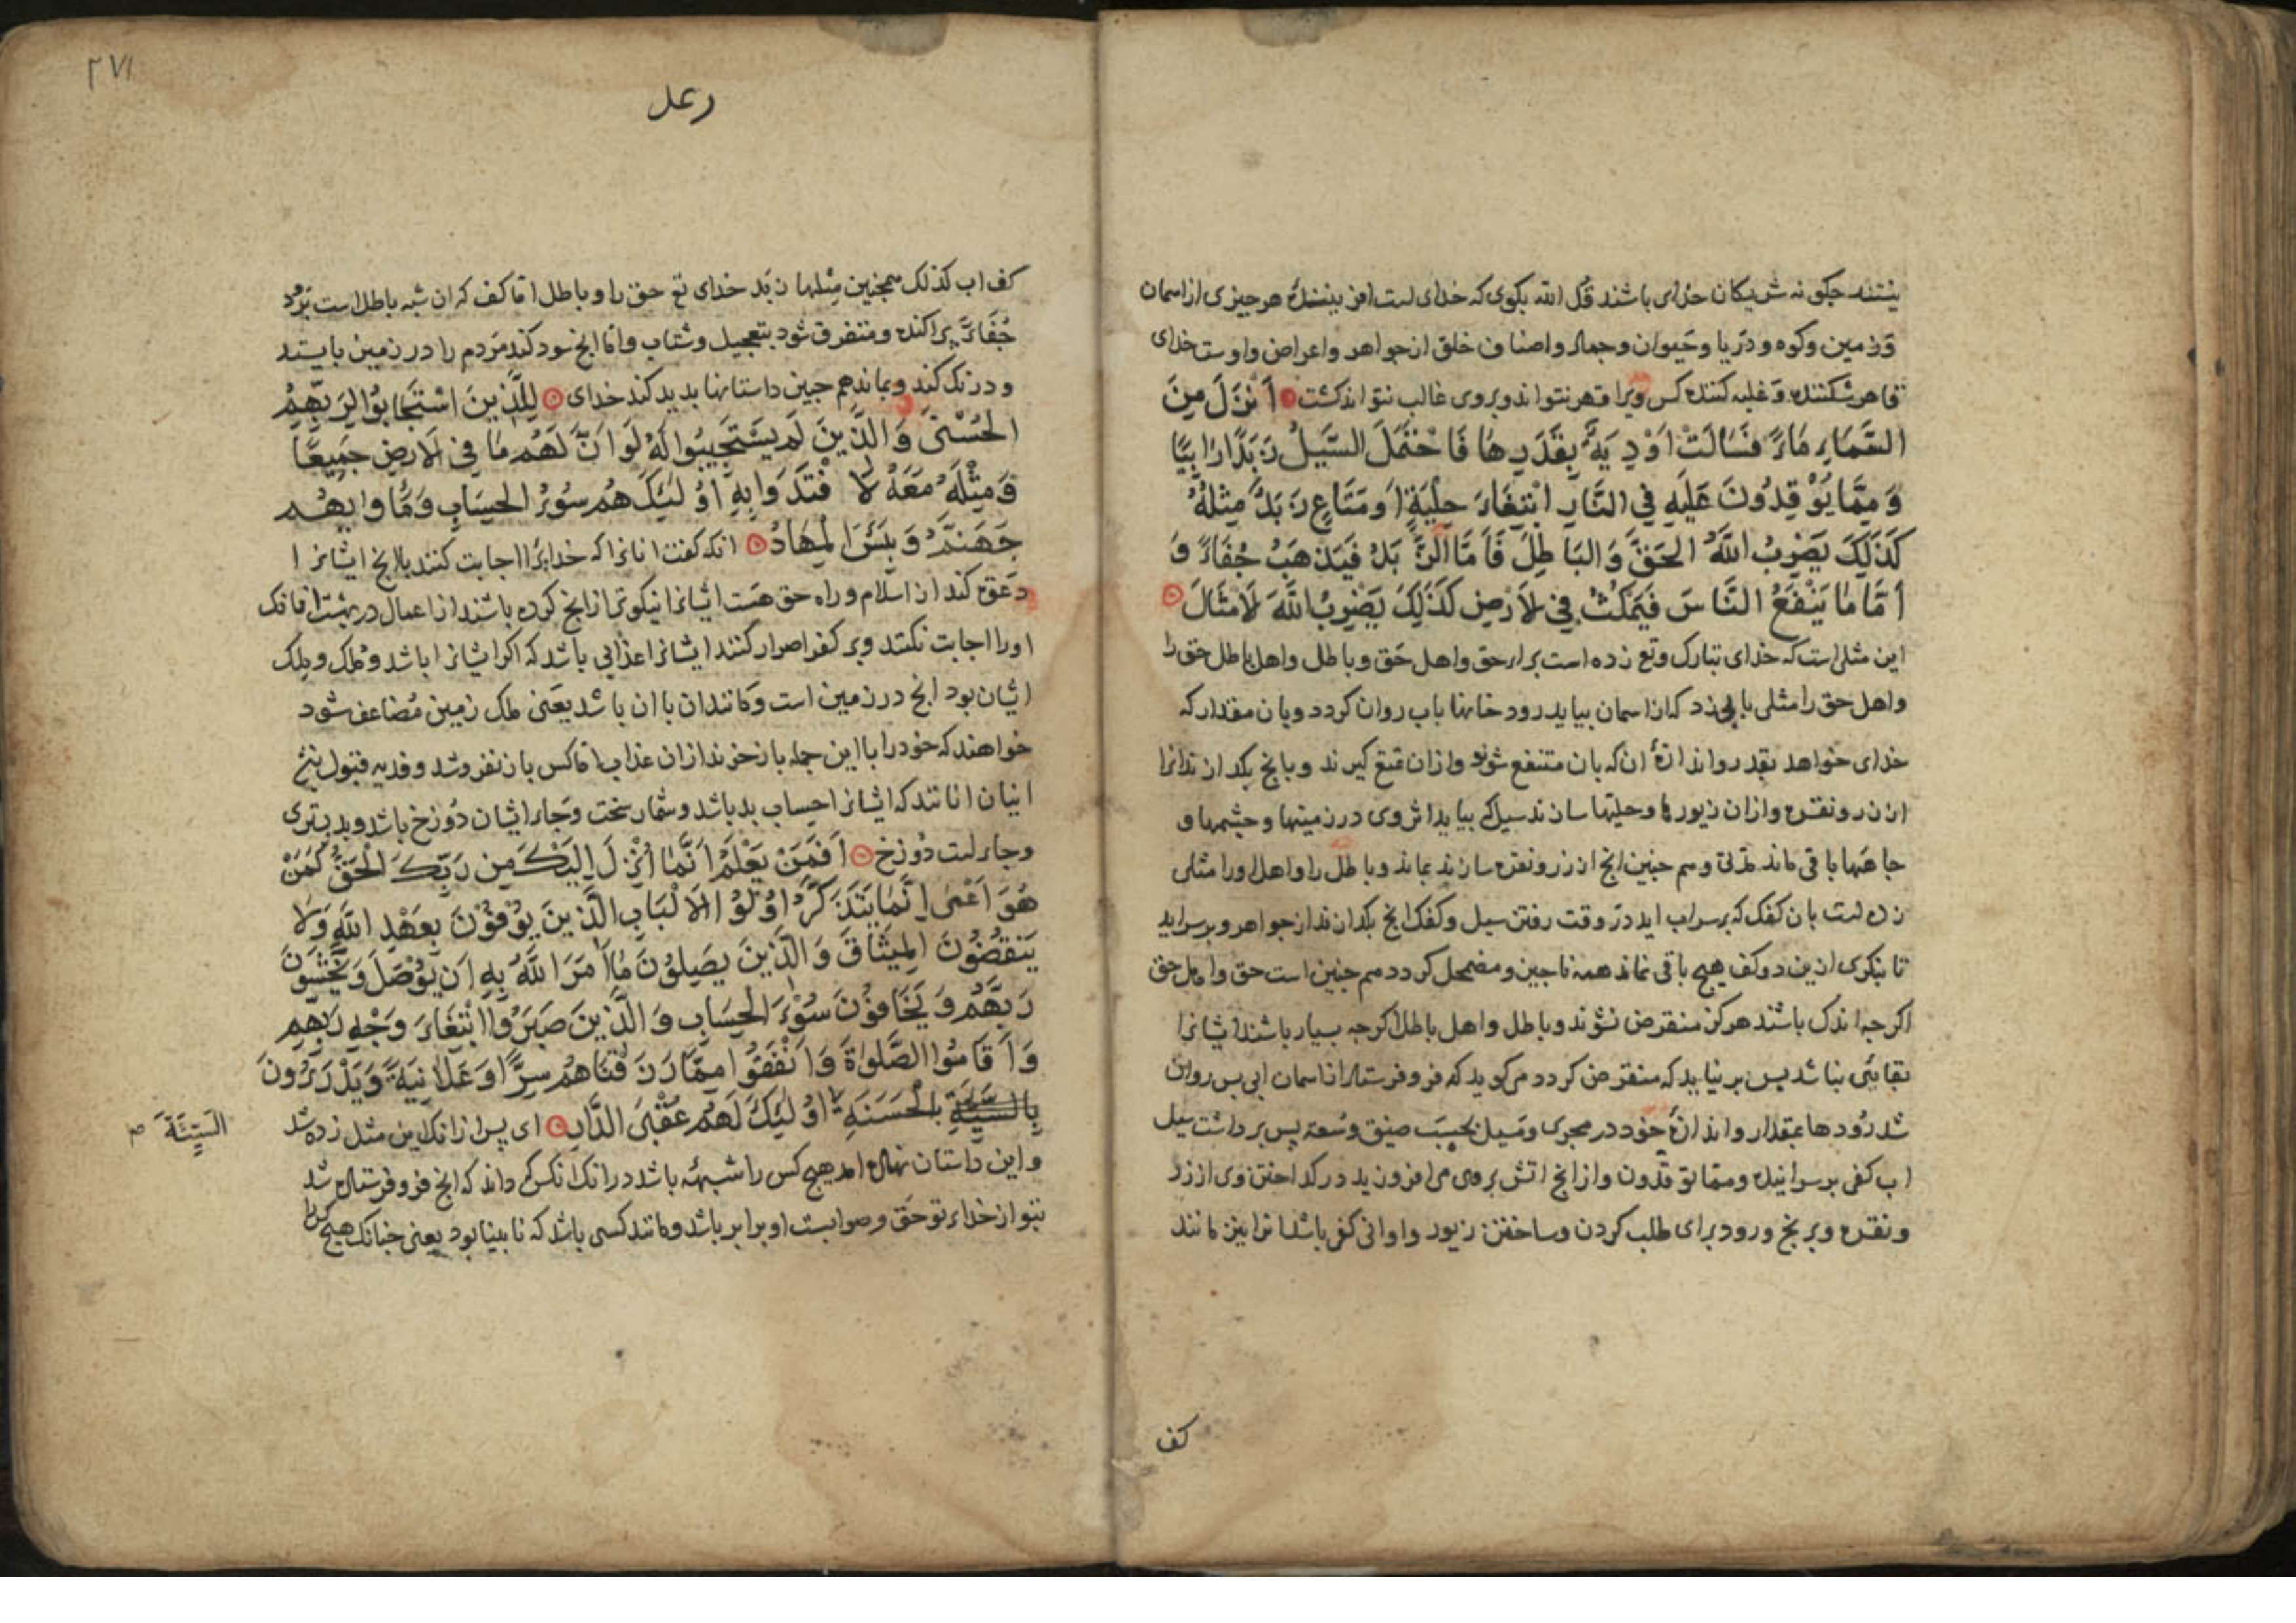 نیستند چگونه شریکان خدای باشند قل الله بکوی که خدای است افریننده هر چیزی از اسمان
وَزمین وکوه ودَریا وحَیوان وجماد واصناف خلق از جواهر واعراض واوست خدای
قاهر شکننده وَغلبه کننده کس ویرا قهر نتواند وبر وی غالب نتواند کشت اَنْزَلَ مِنَ
السَّمَاءِ مَاءً فَسَالَتْ اَوْدِيَةٌ بِقَدَرِهَا فَاحْتَمَلَ السَّيْلُ زَبَدًا رَابِيًا
وَمِمَّا يُوْقِدُونَ عَلَيْهِ فِي النَّارِ ابْتِغَاءَ حِلْيَةٍ اَوْ مَتَاعٍ زَبَدٌ مِثْلُهُ
كَذَلِكَ يَضْرِبُ اللَّهُ الحَقَّ وَالبَاطِلَ فَاَمَّا الزَّبَدُ فَيَذْهَبُ جُفَاءً وَ
اَمَّا مَا يَنْفَعُ النَّاسَ فَيَمْكُثُ فِي لاَرْضِ كَذَلِكَ يَضْرِبُ اللَّهُ لاَمْثَالَ
این مثلی است که خدای تبارک وتع زده است برای حق واهل حَق وباطل واهل باطل حق را
واهل حق را مثلی بابی زد که از اسمان بیاید رود خانها باب روان کردد وبان مقدار که
خدای خواهد بقدر واندازهٔ ان که بان متنفع شوند وازان تمتع کیرند وبانچ بکدازند انرا
از زر ونقره وازان زیورها وحلیتها سازند سیل که بیاید اثر وی در زمینها وچشمها و
جاهها باقی ماند مدتی وهم چنین انچ از زر ونقره سازند بماند وباطل را واهل اورا مثلی
زده است بان کفک که برسراب اید در وقت رفتن سیل وکفک انچ بکدازند از جواهر وبرسراید
تا بنکری ازین دو کف هیچ باقی نماند همه ناچیز ومضمحل کردد هم چنین است حق واهل حق
اکرچه اندک باشند هرکز منقرض نشوند وباطل واهل باطل اکرچه بسیار باشند ایشانرا
بقایی نباشد بس برنیاید که منقرض کردد می کوید که فرو فرستاد از اسمان ابی بس روان
شد رُودها بمقدار واندازهٔ خود در مجری ومَسیل بحسَب ضیق وسُعة پس برداشت سیل
اب کفی برسر اینده ومما توقدون وازانچ اتش بروی می افروزید در کداختن وی از زر
ونقره وبرنج ورود برای طلب کردن وساختن زیور واوانی کفی باشد انرا نیز مانند
کف
۲۷۱
رعد
کف اب کذلک همچنین مثلها زَند خدای تع حق را وباطل اما کف که ان شبه باطل است برَود
جُفَاءً پراکنده ومتفرق شود بتعجیل وشتاب واما انچ سود کند مَردم را در زمین بایستد
ودرنک کند وبماند هم چنین داستانها بدید کند خدای لِلَّذِينَ اسْتَجَابُوا لِرَبِّهِمُ
الحُسْنَى وَالَّذِينَ لَمْ يَسْتَجِيبُوا لَهُ لَوْ اَنَّ لَهُمْ مَا فِي لاَرْضِ جَمِيعًا
وَمِثْلَهُ مَعَهُ لاَفْتَدَوْا بِهِ اُوْلَئِكَ هُمْ سُوْءُ الحِسَابِ وَمَاوَاهُمْ
جَهَنَّمُ وَبِئْسَ الْمِهَادُ انکه کفت انانرا که خدایرا اجابت کنند بدانچ ایشانرا
دَعوَة کند از اسلام وراه حق هَست ایشانرا نیکوتر ازانچ کرده باشند از اعمال در بهشت اما انک
اورا اجابت نکنند وبر کفر اصرار کنند ایشانرا عذابی باشد که اکر ایشانرا باشد ومُلک ومِلک
ایشان بود انچ در زمین است وَمانند ان با ان باشد یعَنی ملک زمین مُضاعف شود
خواهند که خود را با این جمله باز خرند ازان عذاب اما کس باز نفروشد وفدیه قبول
اینان انانند که ایشانرا حساب بد باشد وشمار سخت وَجاء ایشان دُوزخ باشد وبد بستری
وجاء است دُوزخ اَفَمَنْ يَعْلَمُ اَنَّمَا اُنْزِلَ اِلَيْكَ مِن رَبِّكَ الْحَقُّ كَمَنْ
هُوَ اَعْمَى اِنَّمَا يَتَذَكَّرُ اُوْلُوْا الاَلْبَابِ الَّذِينَ يُوْفُوْنَ بِعَهْدِ اللَّهِ وَلا
يَنْقُضُونَ المِيثَاقَ وَالَّذِينَ يَصِلُوْنَ مَا اَمَرَ اللَّهُ بِهِ اَنْ يُوْصَلَ وَيَخْشَوْنَ
رَبَّهُمْ وَيَخَافُوْنَ سُوْءَ الحِسَابِ وَالَّذِينَ صَبَرُوا ابْتِغَاءَ وَجْهِ رَبِّهِمْ
وَاَقَامُوا الصَّلوٰةَ وَاَنْفَقُوْا مِمَّا رَزَقْنَاهُمْ سِرًّا وَعَلاَنِيَةً وَيَدْرَؤُونَ
بِالسَّيِّئَةِ بِالْحَسَنَةِ اُوْلَئِكَ لَهُمْ عُقْبَى الدَّارِ ای پس ازانک این مثل زده شد
السَّيِّئَةَ
واین داستان نهاده امد هیچ کس را شبهَة باشد درانک انکس که داند که انچ فرو فرستاده شد
بتو از خداء تو حَق وصوابست او برابر باشد ومانند کسی باشد که نابینا بود یعنی چنانک هیچ